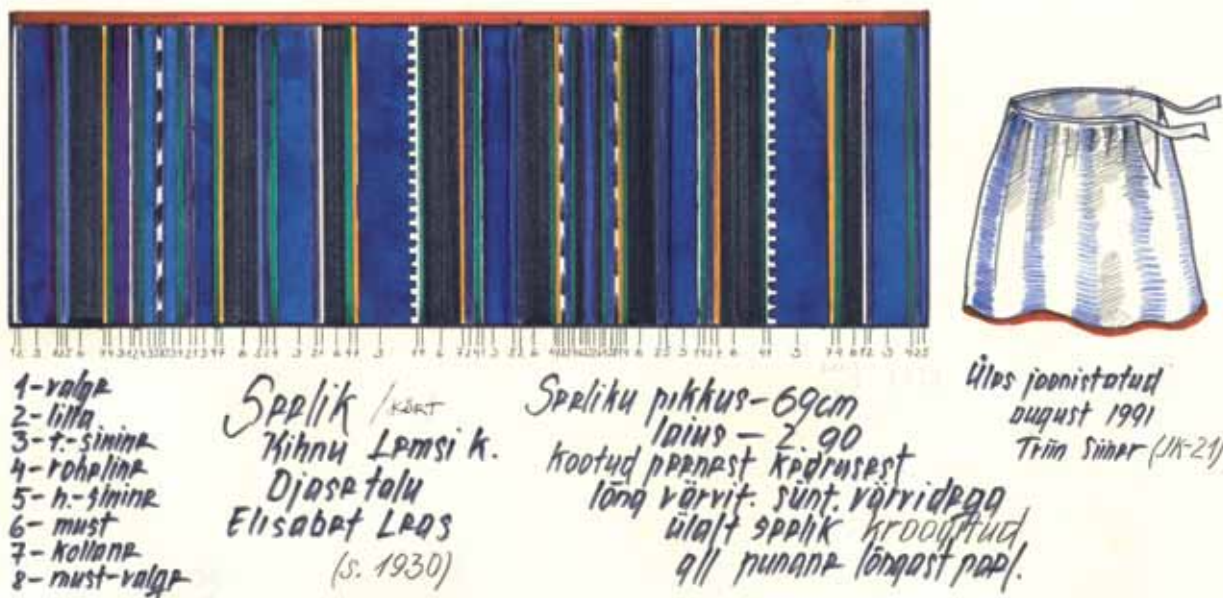 1-valge
2-lilla
3-t.-sinine
4-roheline
5-h.-sinine
6-must
7-kollane
8-must-valge
Seelik /KÖRT
Kihnu Lemsi k.
Ojase talu
Elisabet Leas
(s. 1930)
Seeliku pikkus-69cm
laius - 2.90
kootud peenest kedrusest
lõng värvit. sünt. värvidega
ülalt seelik kroogitud
all punane lõngast pael.
Üles joonistatud
august 1991
Triin Siiner (JK-21)